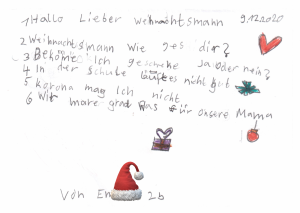 1 Hallo Lieber Weihnachtsmann 9.12.2020
2 Weihnachtsmann wie ges dir?
3 Bekome Ich geschenke ja oder nein?
4 In der Schule läuft es nicht gut
5 Korona mag Ich nicht
6 Wir mare grad Das für onsore Mama
Von Em 2b